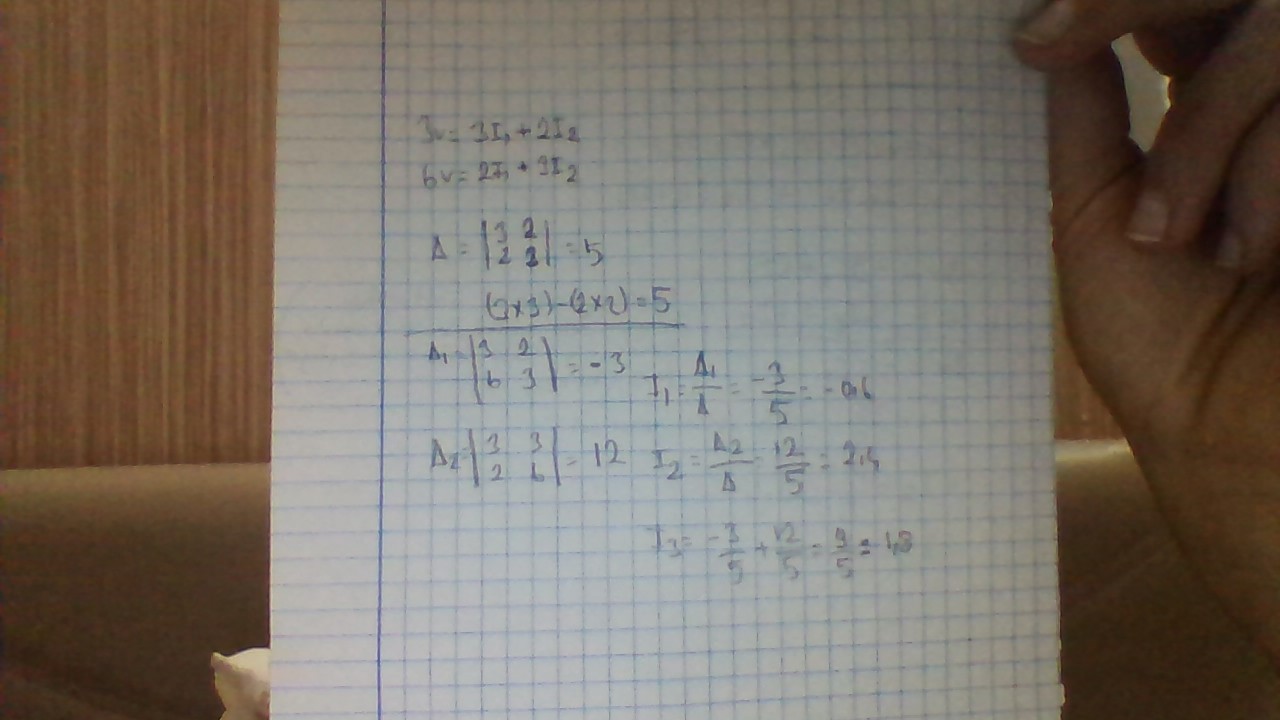 3v = 3I₁ + 2I₂
6v = 2I₁ + 3I₂
Δ = |3 2; 2 3| = 5
(3x3) - (2x2) = 5
Δ₁ = |3 2; 6 3| = -3
I₁ = Δ₁/Δ = -3/5 = -0,6
Δ₂ = |3 3; 2 6| = 12
I₂ = Δ₂/Δ = 12/5 = 2,4
I₃ = -3/5 + 12/5 = 9/5 = 1,8